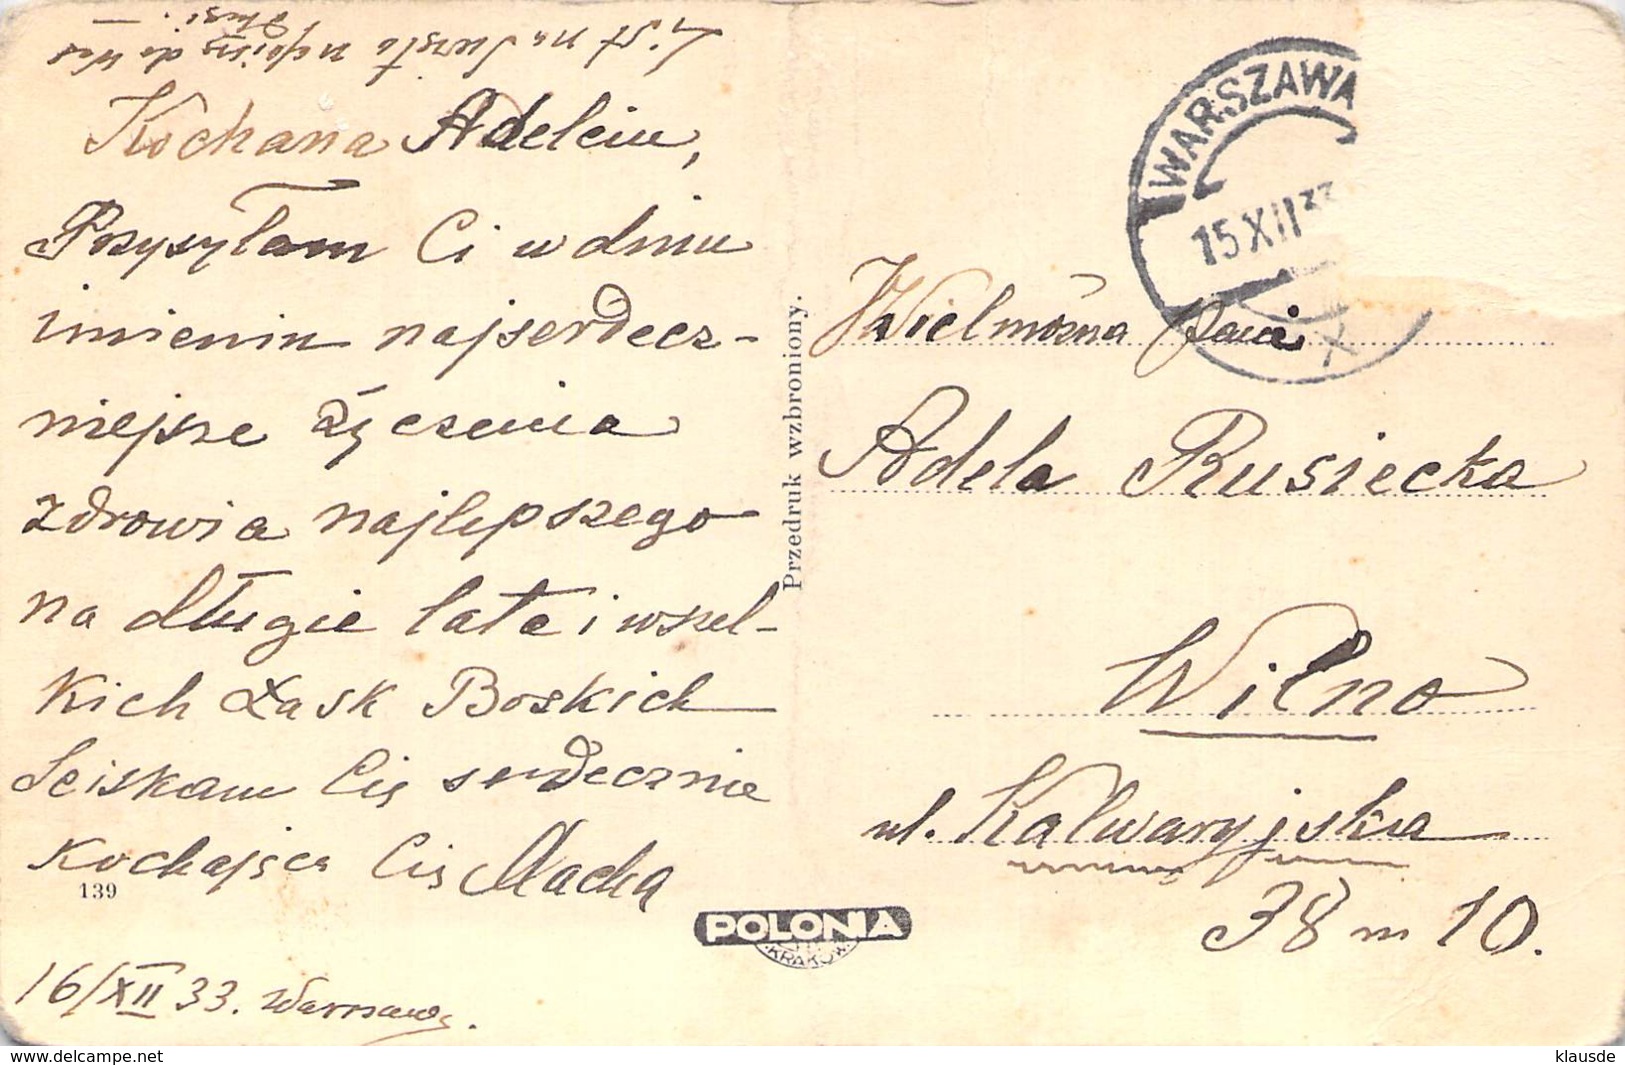 List na święta
Kochana Adelciu,
Przysyłam Ci w dniu
imienin najserdecz-
niejsze życzenia
zdrowia najlepszego
na długie lata i wszel-
kich Łask Boskich
Sciskam Cię serdecznie
Kochająca Cię Macka
139
16/XII 33. Warszawa.
Przedruk wzbroniony.
POLONIA
KRAKÓW
WARSZAWA
15 XII 33
X
Wielmożna Pani
Adela Rusiecka
Wilno
ul. Kalwaryjska
38 m 10.
delcampe.net
klausde